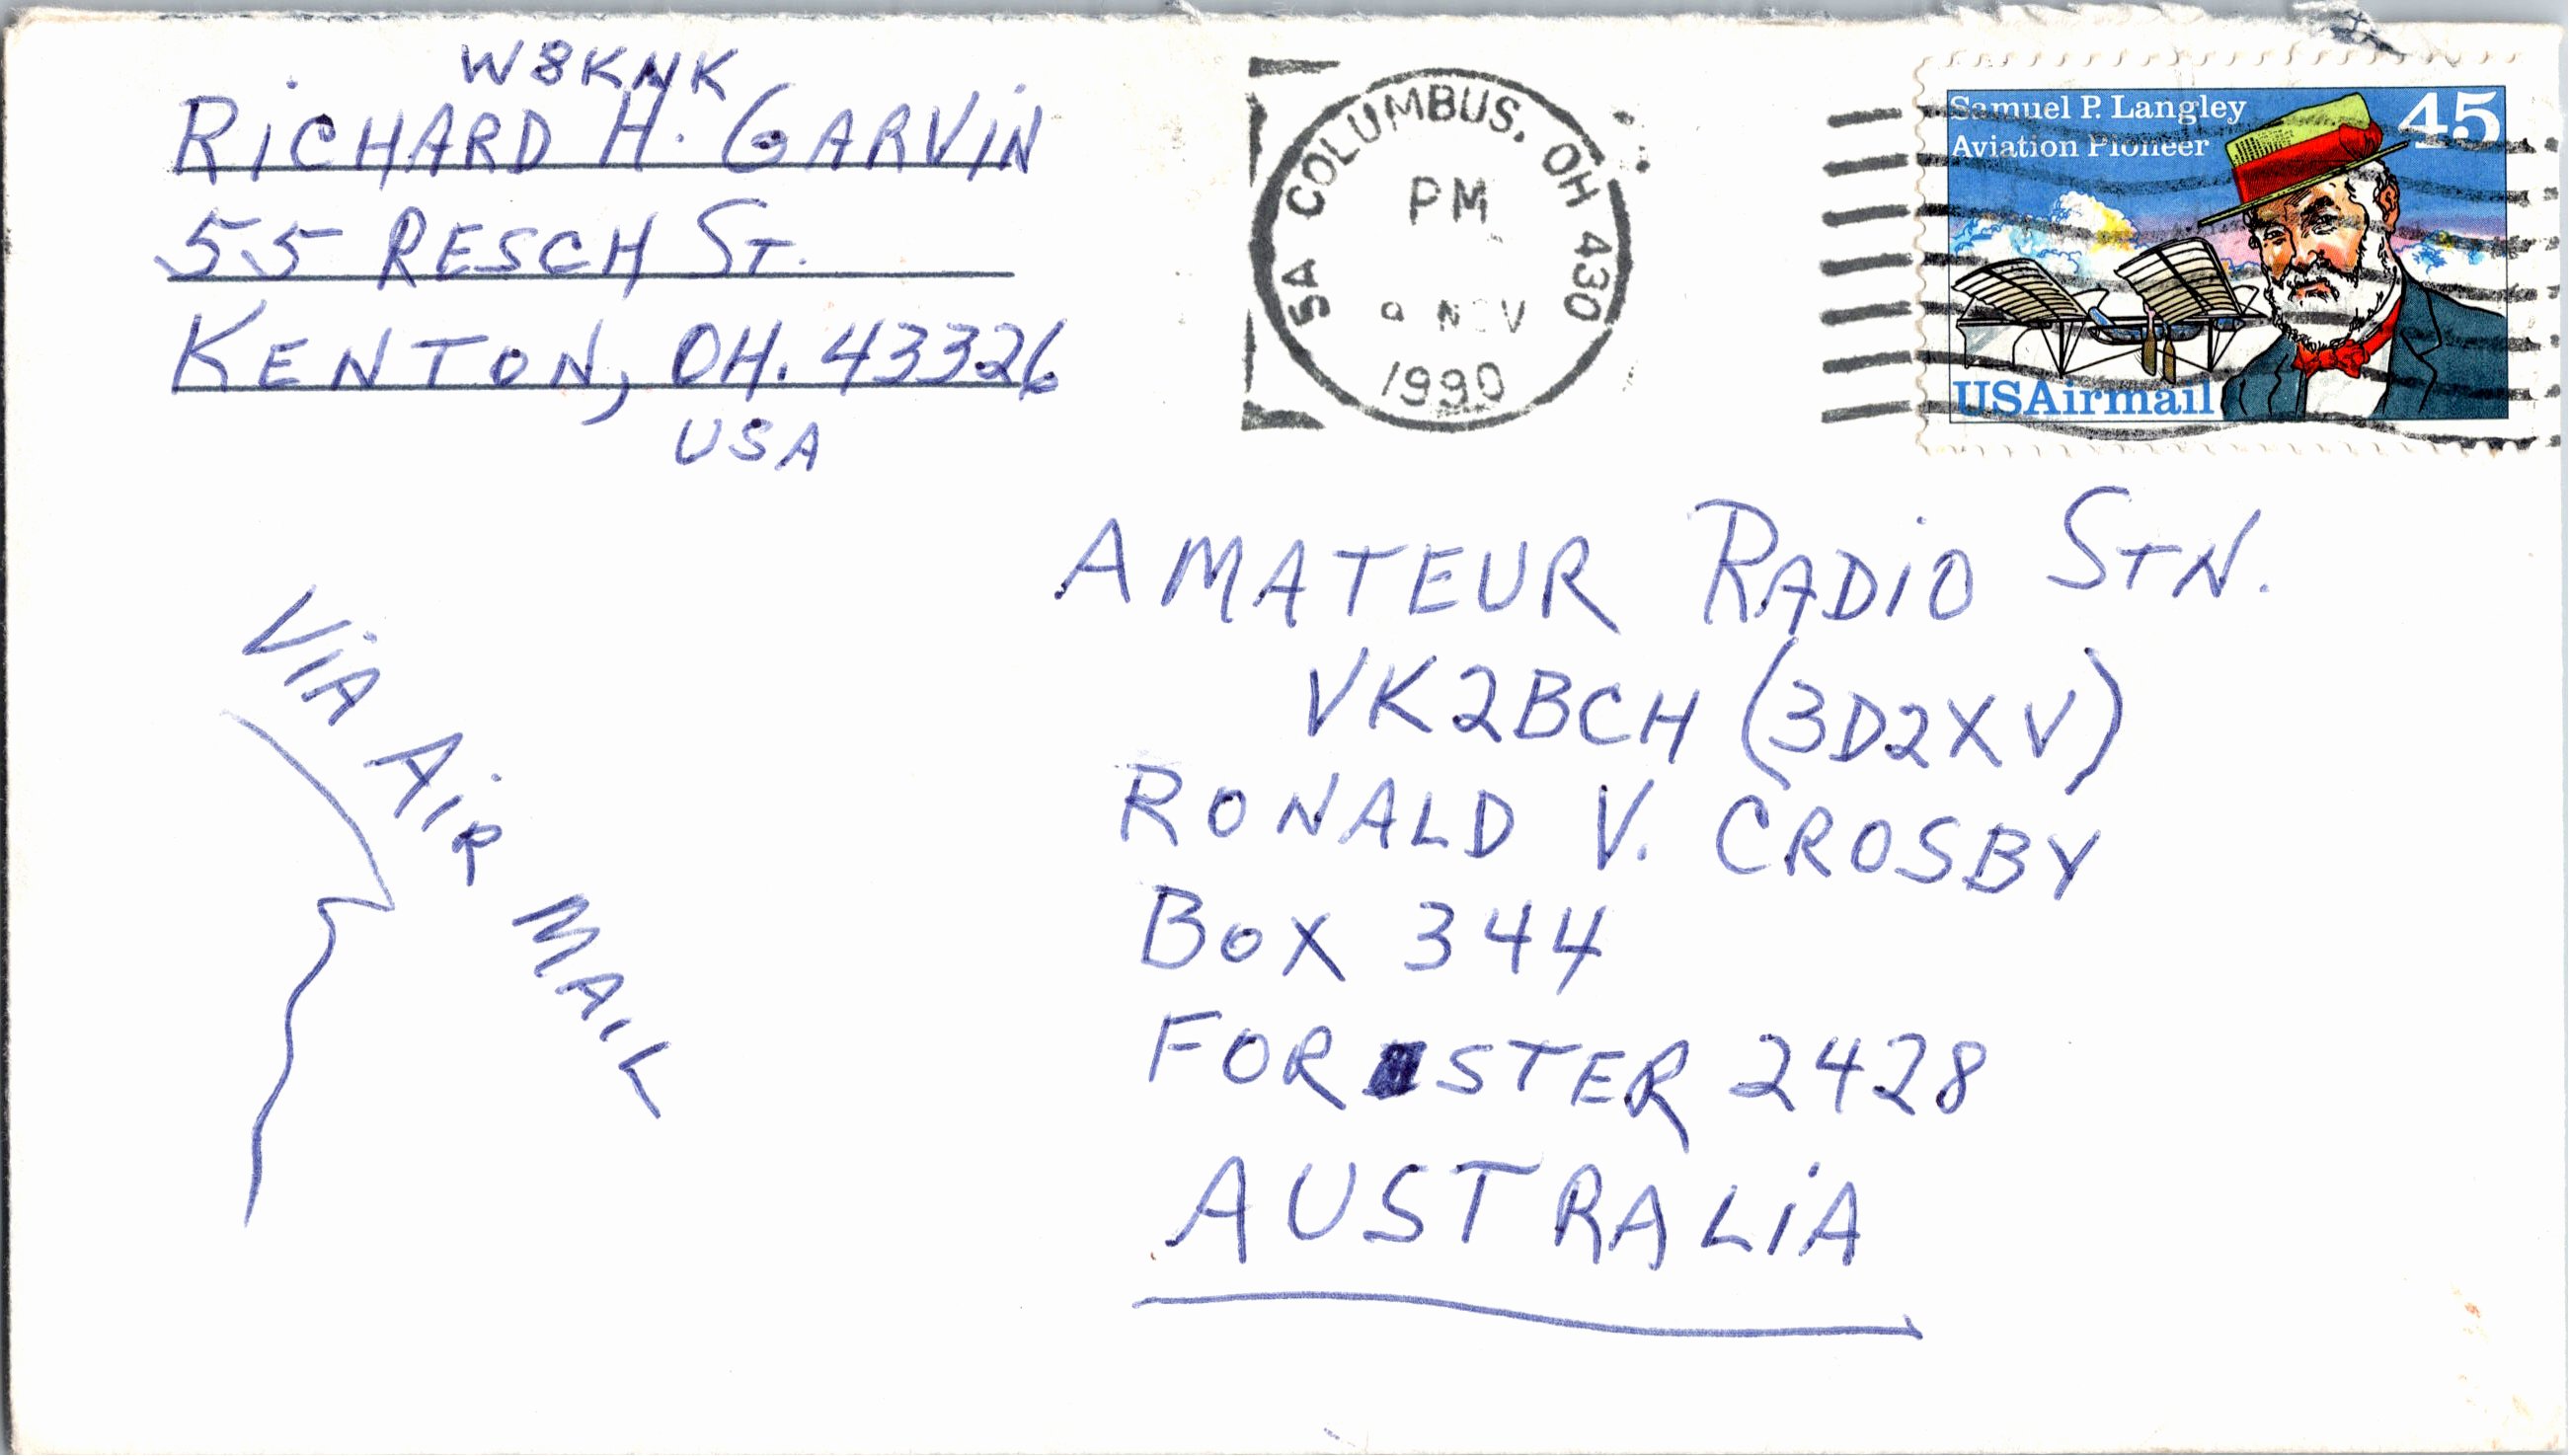 W8KNK
RiCHARD H. GARViN
55 RESCH ST.
KENTON, OH. 43326
USA
SA COLUMBUS, OH 430
PM
NOV
1990
Samuel P. Langley
Aviation Pioneer
45
USAirmail
AMATEUR RADiO STN.
VK2BCH (3D2XV)
RONALD V. CROSBY
BOX 344
FOR STER 2428
AUSTRALiA
ViA AiR MAiL